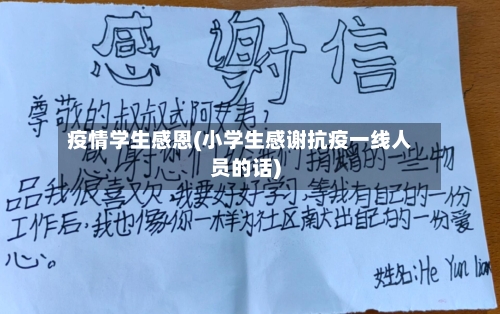 感谢信
尊敬的叔叔或阿姨：
疫情学生感恩(小学生感谢抗疫一线人
员的话)
感谢你们 们捐赠的一些物
品我很喜欢，我要好好学习，等我有自己的一份
工作后，我也像你一样为社区献出自己的一份爱
心。
姓名：He Yun lian